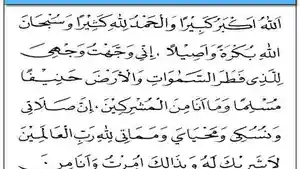 اَللهُ اَكْبَرُ كَبِيْرًا وَالْحَمْدُ لِلّٰهِ كَثِيْرًا وَسُبْحَانَ
اللهِ بُكْرَةً وَاَصِيْلًا . اِنِّي وَجَّهْتُ وَجْهِيَ
لِلَّذِيْ فَطَرَ السَّمٰوَاتِ وَالْاَرْضَ حَنِيْفًا
مُسْلِمًا وَمَا اَنَا مِنَ الْمُشْرِكِيْنَ . اِنَّ صَلَاتِيْ
وَنُسُكِيْ وَمَحْيَايَ وَمَمَاتِيْ لِلّٰهِ رَبِّ الْعَالَمِيْنَ
لَا شَرِيْكَ لَهُ وَبِذَالِكَ اُمِرْتُ وَاَنَا مِنَ